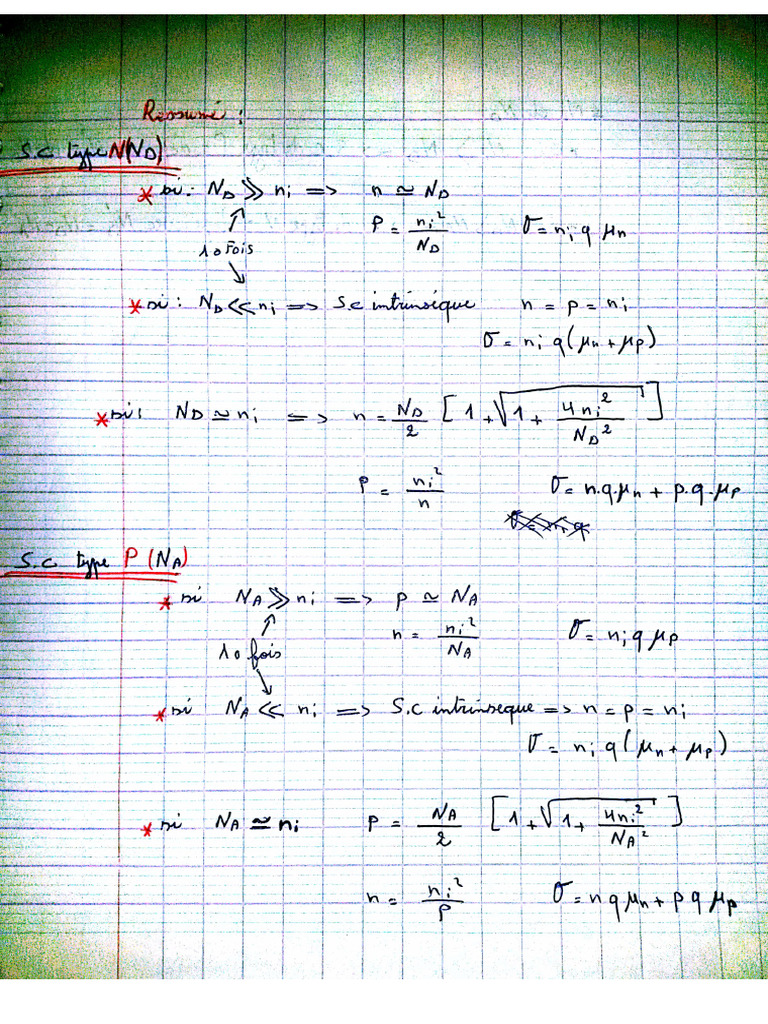 Ressumé :
S.C type N (ND)
* si : ND >> ni => n ≃ ND
P = ni²/ND σ = ni q μn
10 Fois
* si : ND << ni => S.c intrinséque n = p = ni
σ = ni q (μn + μp)
* si : ND ≃ ni <=> n = ND/2 [1 + √(1 + 4ni²/ND²)]
P = ni²/n σ = n.q.μn + p.q.μp
S.C type P (NA)
* si NA >> ni => p ≃ NA
n = ni²/NA σ = ni q μp
10 fois
* si NA << ni => S.C intrinseque => n = p = ni
σ = ni q (μn + μp)
* si NA ≃ ni P = NA/2 [1 + √(1 + 4ni²/NA²)]
n = ni²/P σ = n q μn + p q μp